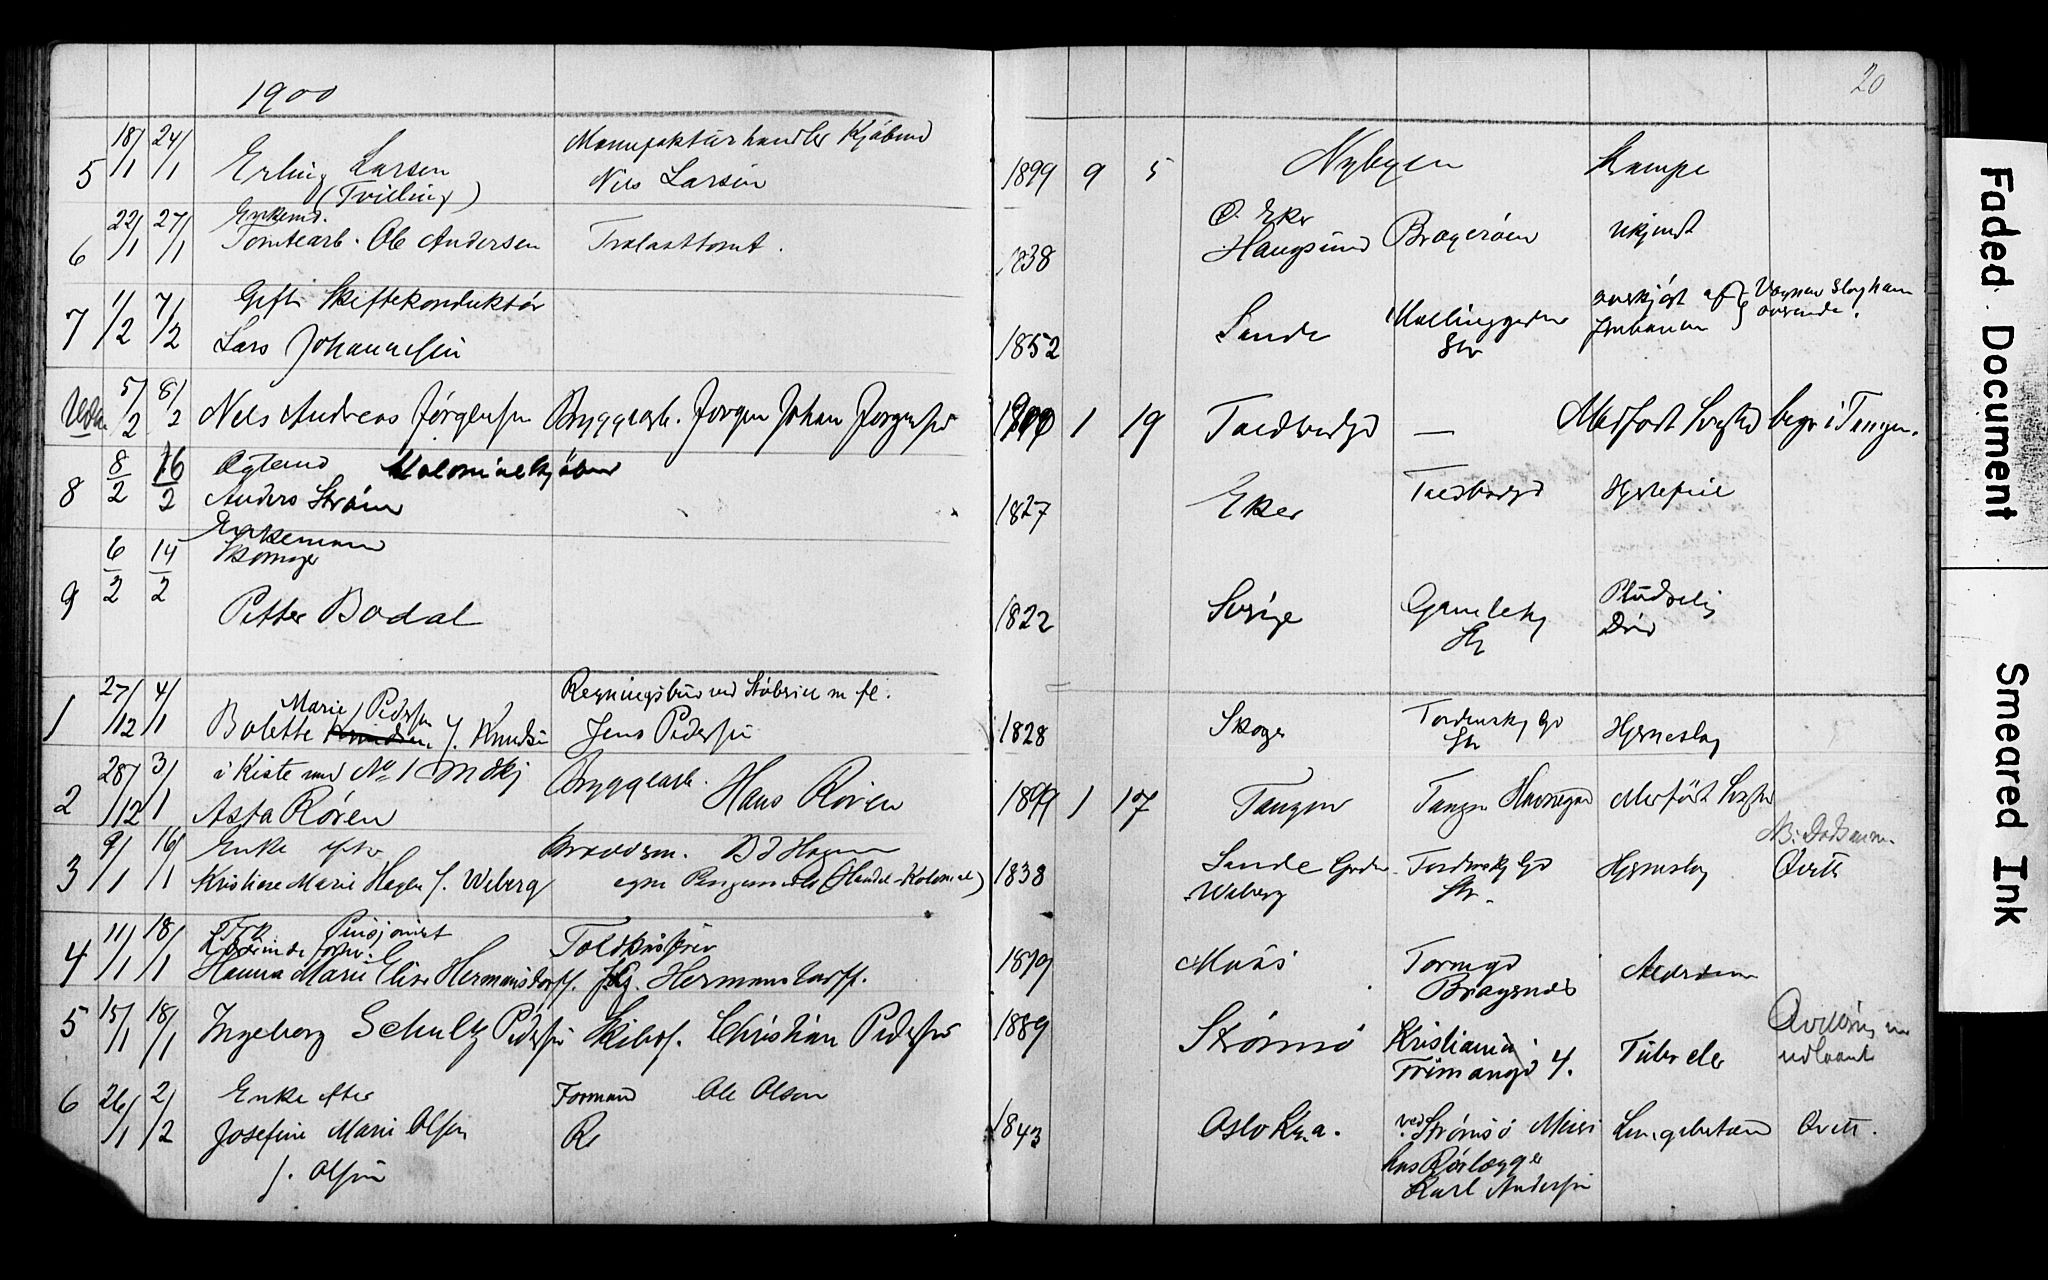 1900
20
5 18/1 24/1 Erling Larsen Manufakturhandler Kjøbmd
(Tvilling) Nils Larsen 1899 9 5 Nybyen Krampe
6 22/1 27/1 Enkemd.
Tomtearb. Ole Andersen Trælasttomt. 1838 Ø. Eker
Haugsund Bragerøen ukjendt
7 1/2 7/2 Gift Skiftekonduktør
Lars Johannesen 1852 Sande Str overkjørt af
Jernbanen Vognen slog ham
overende.
5/2 8/2 Nils Andreas Jørgensen Bryggearb. Jørgen Johan Jørgensen 1900 1 19 Toldbodgd — Medfødt Svaghed begr. i Tangen.
8 8/2 16/2 Ægtemd Kolonialkjøbmd
Anders Strøm 1827 Eker Toldbodgd Hjertefeil
9 6/2 14/2 Enkemand
Skomager
Petter Bodal 1822 Sverige Gamlekg
Str Pludselig
Død
1 27/12 4/1 Marie Pedersen
Bolette f. Knudsen Regningsbud ved m fl.
Jens Pedersen 1828 Skoger Tordenskj Gd
Str Hjerneslag
2 28/12 3/1 i Kiste med No 1
Asta Røren Bryggearb. Hans Røren 1899 1 17 Tangen Tangen Havnegd Medfødt Svaghed
3 9/1 16/1 Enke efter
Kristiane Marie Hagen f. Weberg Brændsm. Hagen
egne Pengemidler (Handel-Kolonial) 1838 Sande
Weberg Tordenskj Gd
Str. Hjerneslag NB: Dødsanm.
Qvitt
4 11/1 18/1 Pensjonist
Hanna Marie Elise Hermansdorff. Toldkasserer
Hermansdorff. Moss Torvegd
Bragernes Alderdom
5 15/1 18/1 Ingeborg Schultz Pedersen Skibsf. Christian Pedersen 1889 Strømsø Kristiania
4. Tuberkler Qvittering
udlaant
6 26/1 2/2 Enke efter
Josefine Marie Olsen
f. Olsen Formand Ole Olsen
R 1843 Oslo Kr.a. ved Strømsø
hos Rørlægger
Karl Andersen Lungebetænd Qvitt.
Faded Document
Smeared Ink